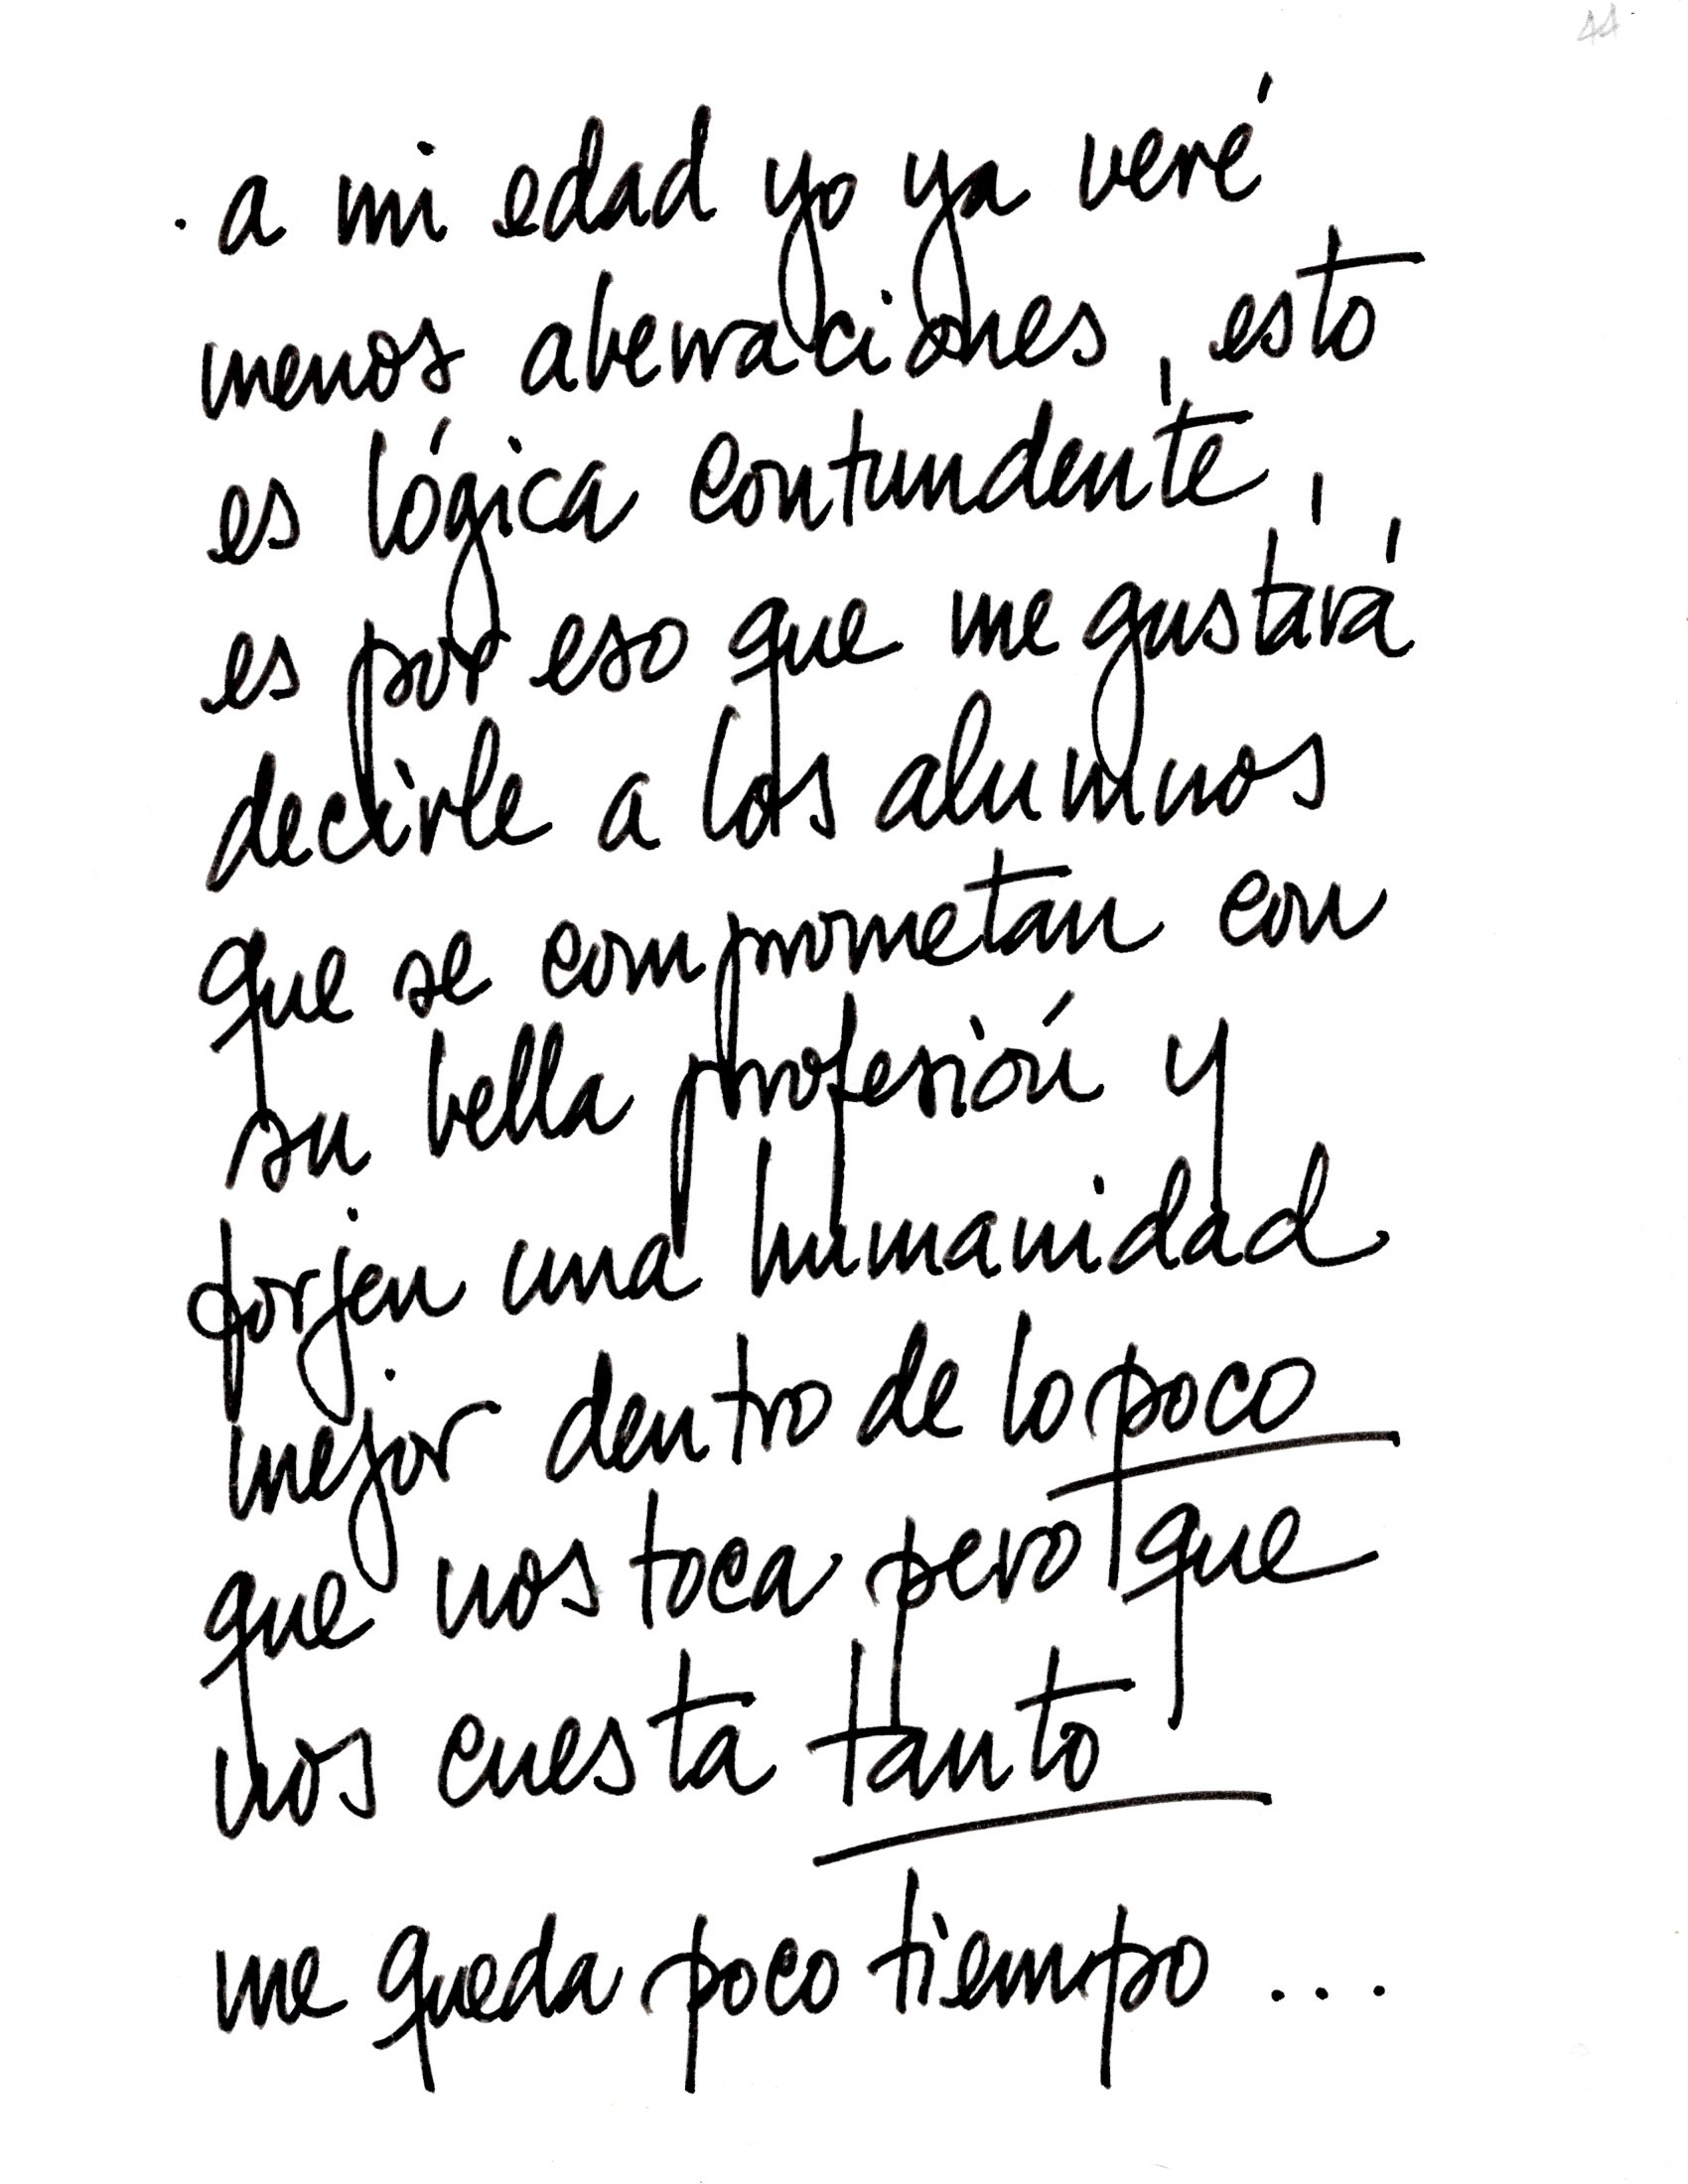 44
. a mi edad yo ya veré
menos aberraciones, esto
es lógica contundente,
es por eso que me gustará
decirle a los alumnos
que se comprometan con
su bella profesión y
forjen una humanidad
mejor dentro de lo poco
que nos toca pero que
nos cuesta tanto
me queda poco tiempo ...